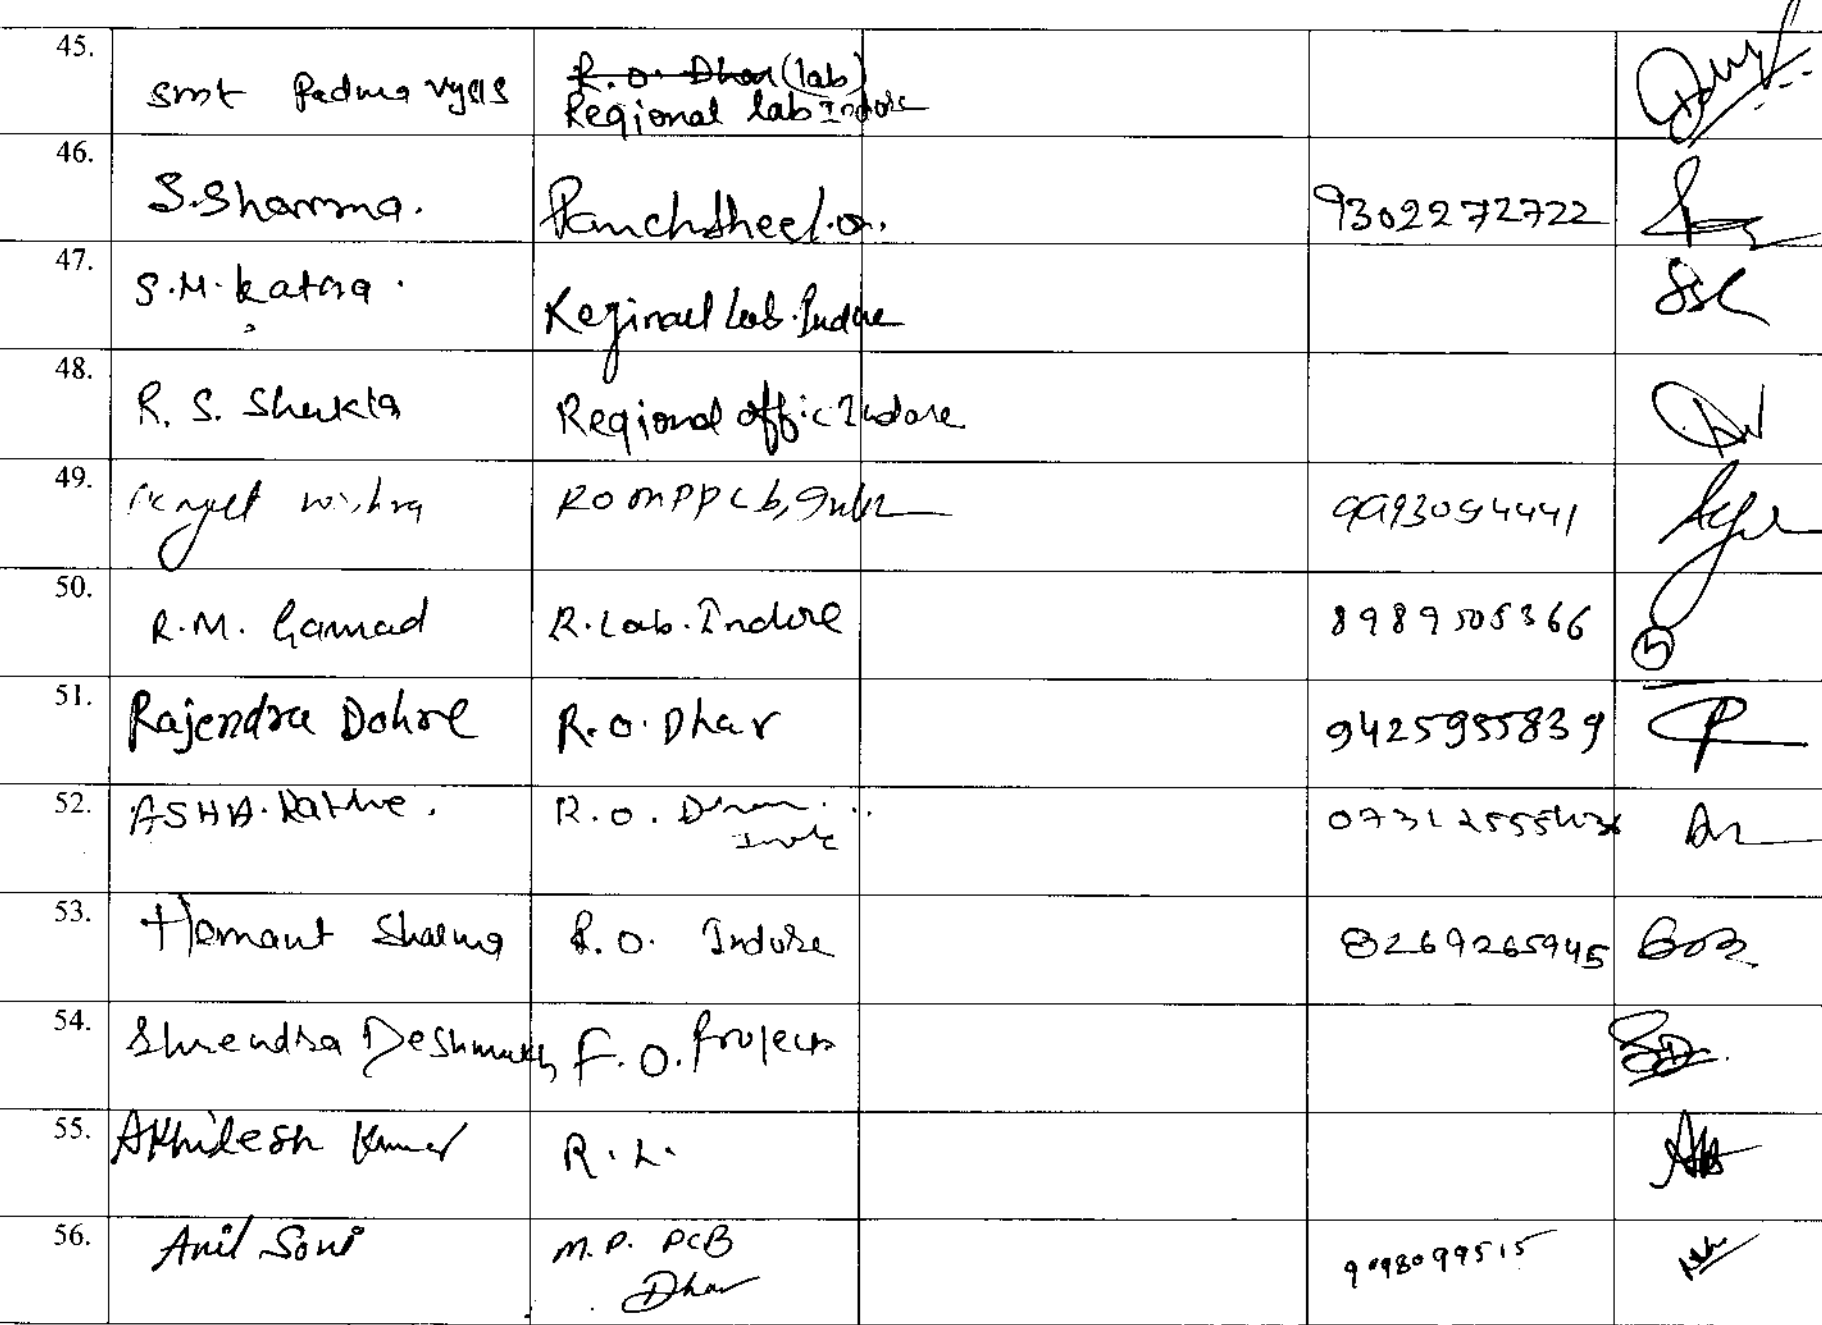 45. Smt Padma Vyas R.O. Dhar (lab)
Regional lab Indore
46. S. Sharma. Panchsheel.o. 9302272722
47. S.M. Katara. Reginael Lab. Indore
48. R. S. Shukla Regional offic Indore
49. ROMPPCb,
50. R.M. Gamad R. Lab. Indore 8989505366
51. Rajendra Dohre R.O. Dhar 9425955839
52. ASHA. Rathve. R.O. Dhar
53. Hemant Sharma R.O. Indore 8269265945
54. Deshmukh F.O. Project
55. Akhilesh Kumar R.L.
56. Anil Soni M.P. PCB 9098099515
Dhar